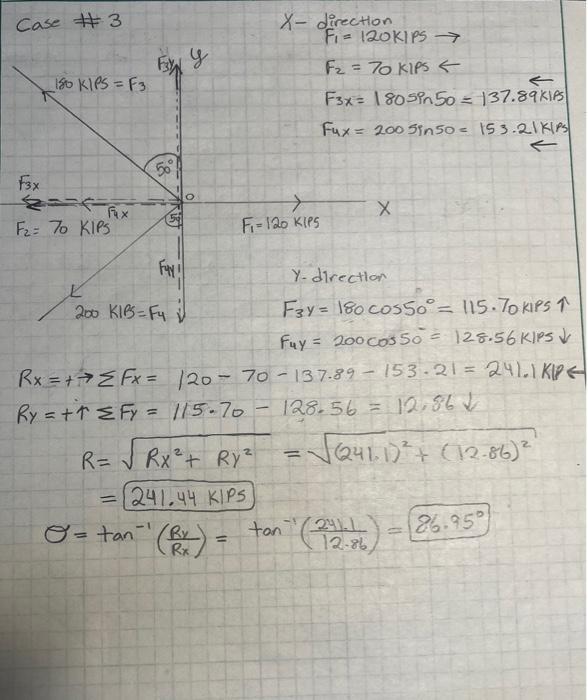 Case # 3
X- direction
F1 = 120 KIPS →
F2 = 70 KIPS ←
F3x = 180 sin50 = 137.89 KIPS ←
F4x = 200 sin50 = 153.21 KIPS ←
F3y y
180 KIPS = F3
50°
F3x
F4x
O
X
F2 = 70 KIPS
50
F1 = 120 KIPS
F4y
200 KIPS = F4
Y-direction
F3y = 180 cos50° = 115.70 KIPS ↑
F4y = 200 cos50° = 128.56 KIPS ↓
Rx = +→ ΣFx = 120 - 70 - 137.89 - 153.21 = 241.1 KIP ←
Ry = +↑ ΣFy = 115.70 - 128.56 = 12.86 ↓
R = √Rx² + Ry² = √(241.1)² + (12.86)²
= 241.44 KIPS
θ = tan⁻¹ (Ry/Rx) = tan⁻¹ (241.1/12.86) = 86.95°